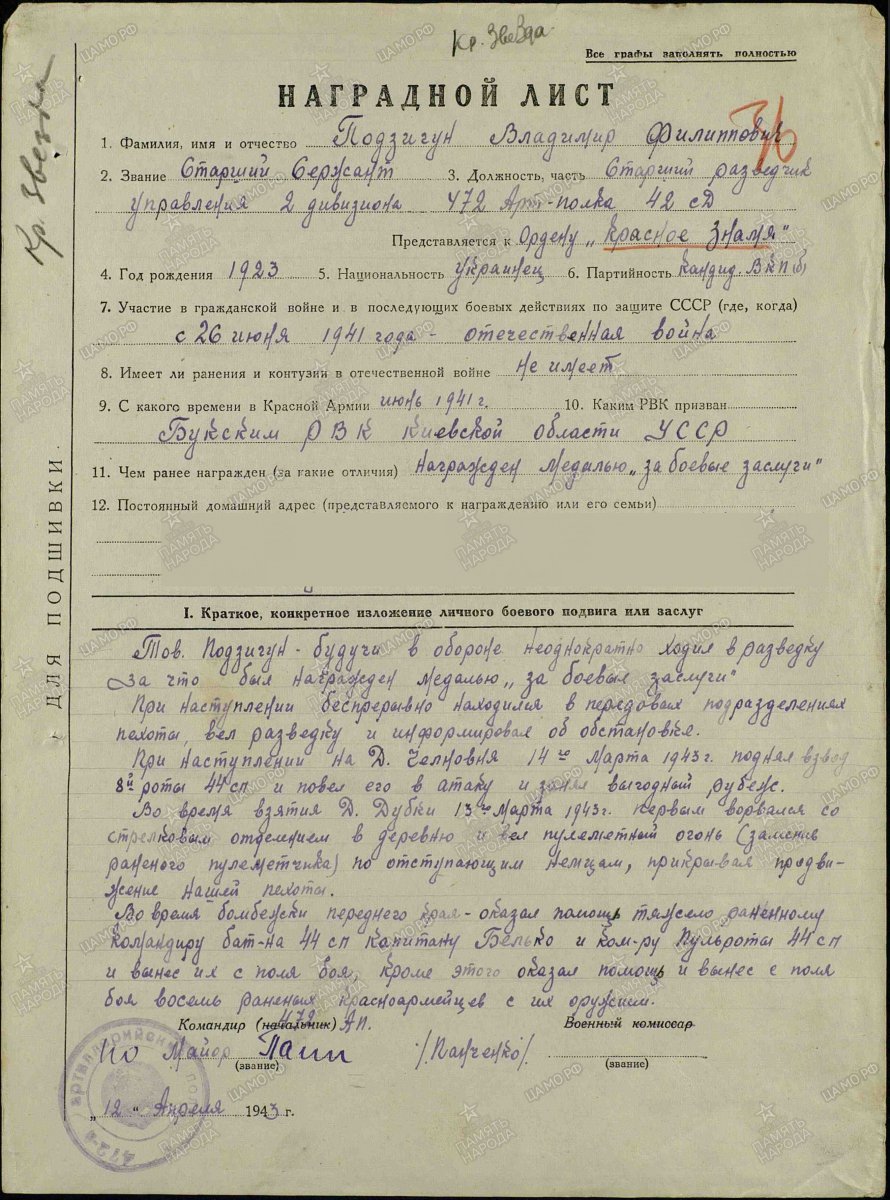 Кр. Звезда
Все графы заполнять полностью
НАГРАДНОЙ ЛИСТ
Кр. Звезда
1. Фамилия, имя и отчество Подзигун Владимир Филиппович
2. Звание Старший Сержант 3. Должность, часть Старший разведчик
управления 2 дивизиона 472 Арт-полка 42 сд
Представляется к Ордену „Красное Знамя"
4. Год рождения 1923 5. Национальность Украинец 6. Партийность кандид. ВКП(б)
7. Участие в гражданской войне и в последующих боевых действиях по защите СССР (где, когда)
с 26 июня 1941 года - отечественная война
8. Имеет ли ранения и контузии в отечественной войне не имеет
9. С какого времени в Красной Армии июнь 1941 г. 10. Каким РВК призван
Букским РВК Киевской области УССР
11. Чем ранее награжден (за какие отличия) Награжден медалью „за боевые заслуги"
12. Постоянный домашний адрес (представляемого к награждению или его семьи)
ДЛЯ ПОДШИВКИ
I. Краткое, конкретное изложение личного боевого подвига или заслуг
Тов. Подзигун - будучи в обороне неоднократно ходил в разведку
за что был награжден медалью „за боевые заслуги"
При наступлении беспрерывно находился в передовых подразделениях
пехоты, вел разведку и информировал об обстановке.
При наступлении на д. Челновня 14го марта 1943 г. поднял взвод
8й роты 44 сп и повел его в атаку и занял выгодный рубеж.
Во время взятия д. Дубки 13го марта 1943 г. первым ворвался со
стрелковым отделением в деревню и вел пулеметный огонь (заменив
раненого пулеметчика) по отступающим немцам, прикрывая продви-
жение нашей пехоты.
Во время бомбежки переднего края - оказал помощь тяжело раненному
командиру бат-на 44 сп капитану Белько и ком-ру пульроты 44 сп
и вынес их с поля боя, кроме этого оказал помощь и вынес с поля
боя восемь раненых красноармейцев с их оружием.
Командир (начальник) 472 АП. Военный комиссар
Майор /Панченко/
(звание) (звание)
„12" Апреля 1943 г.